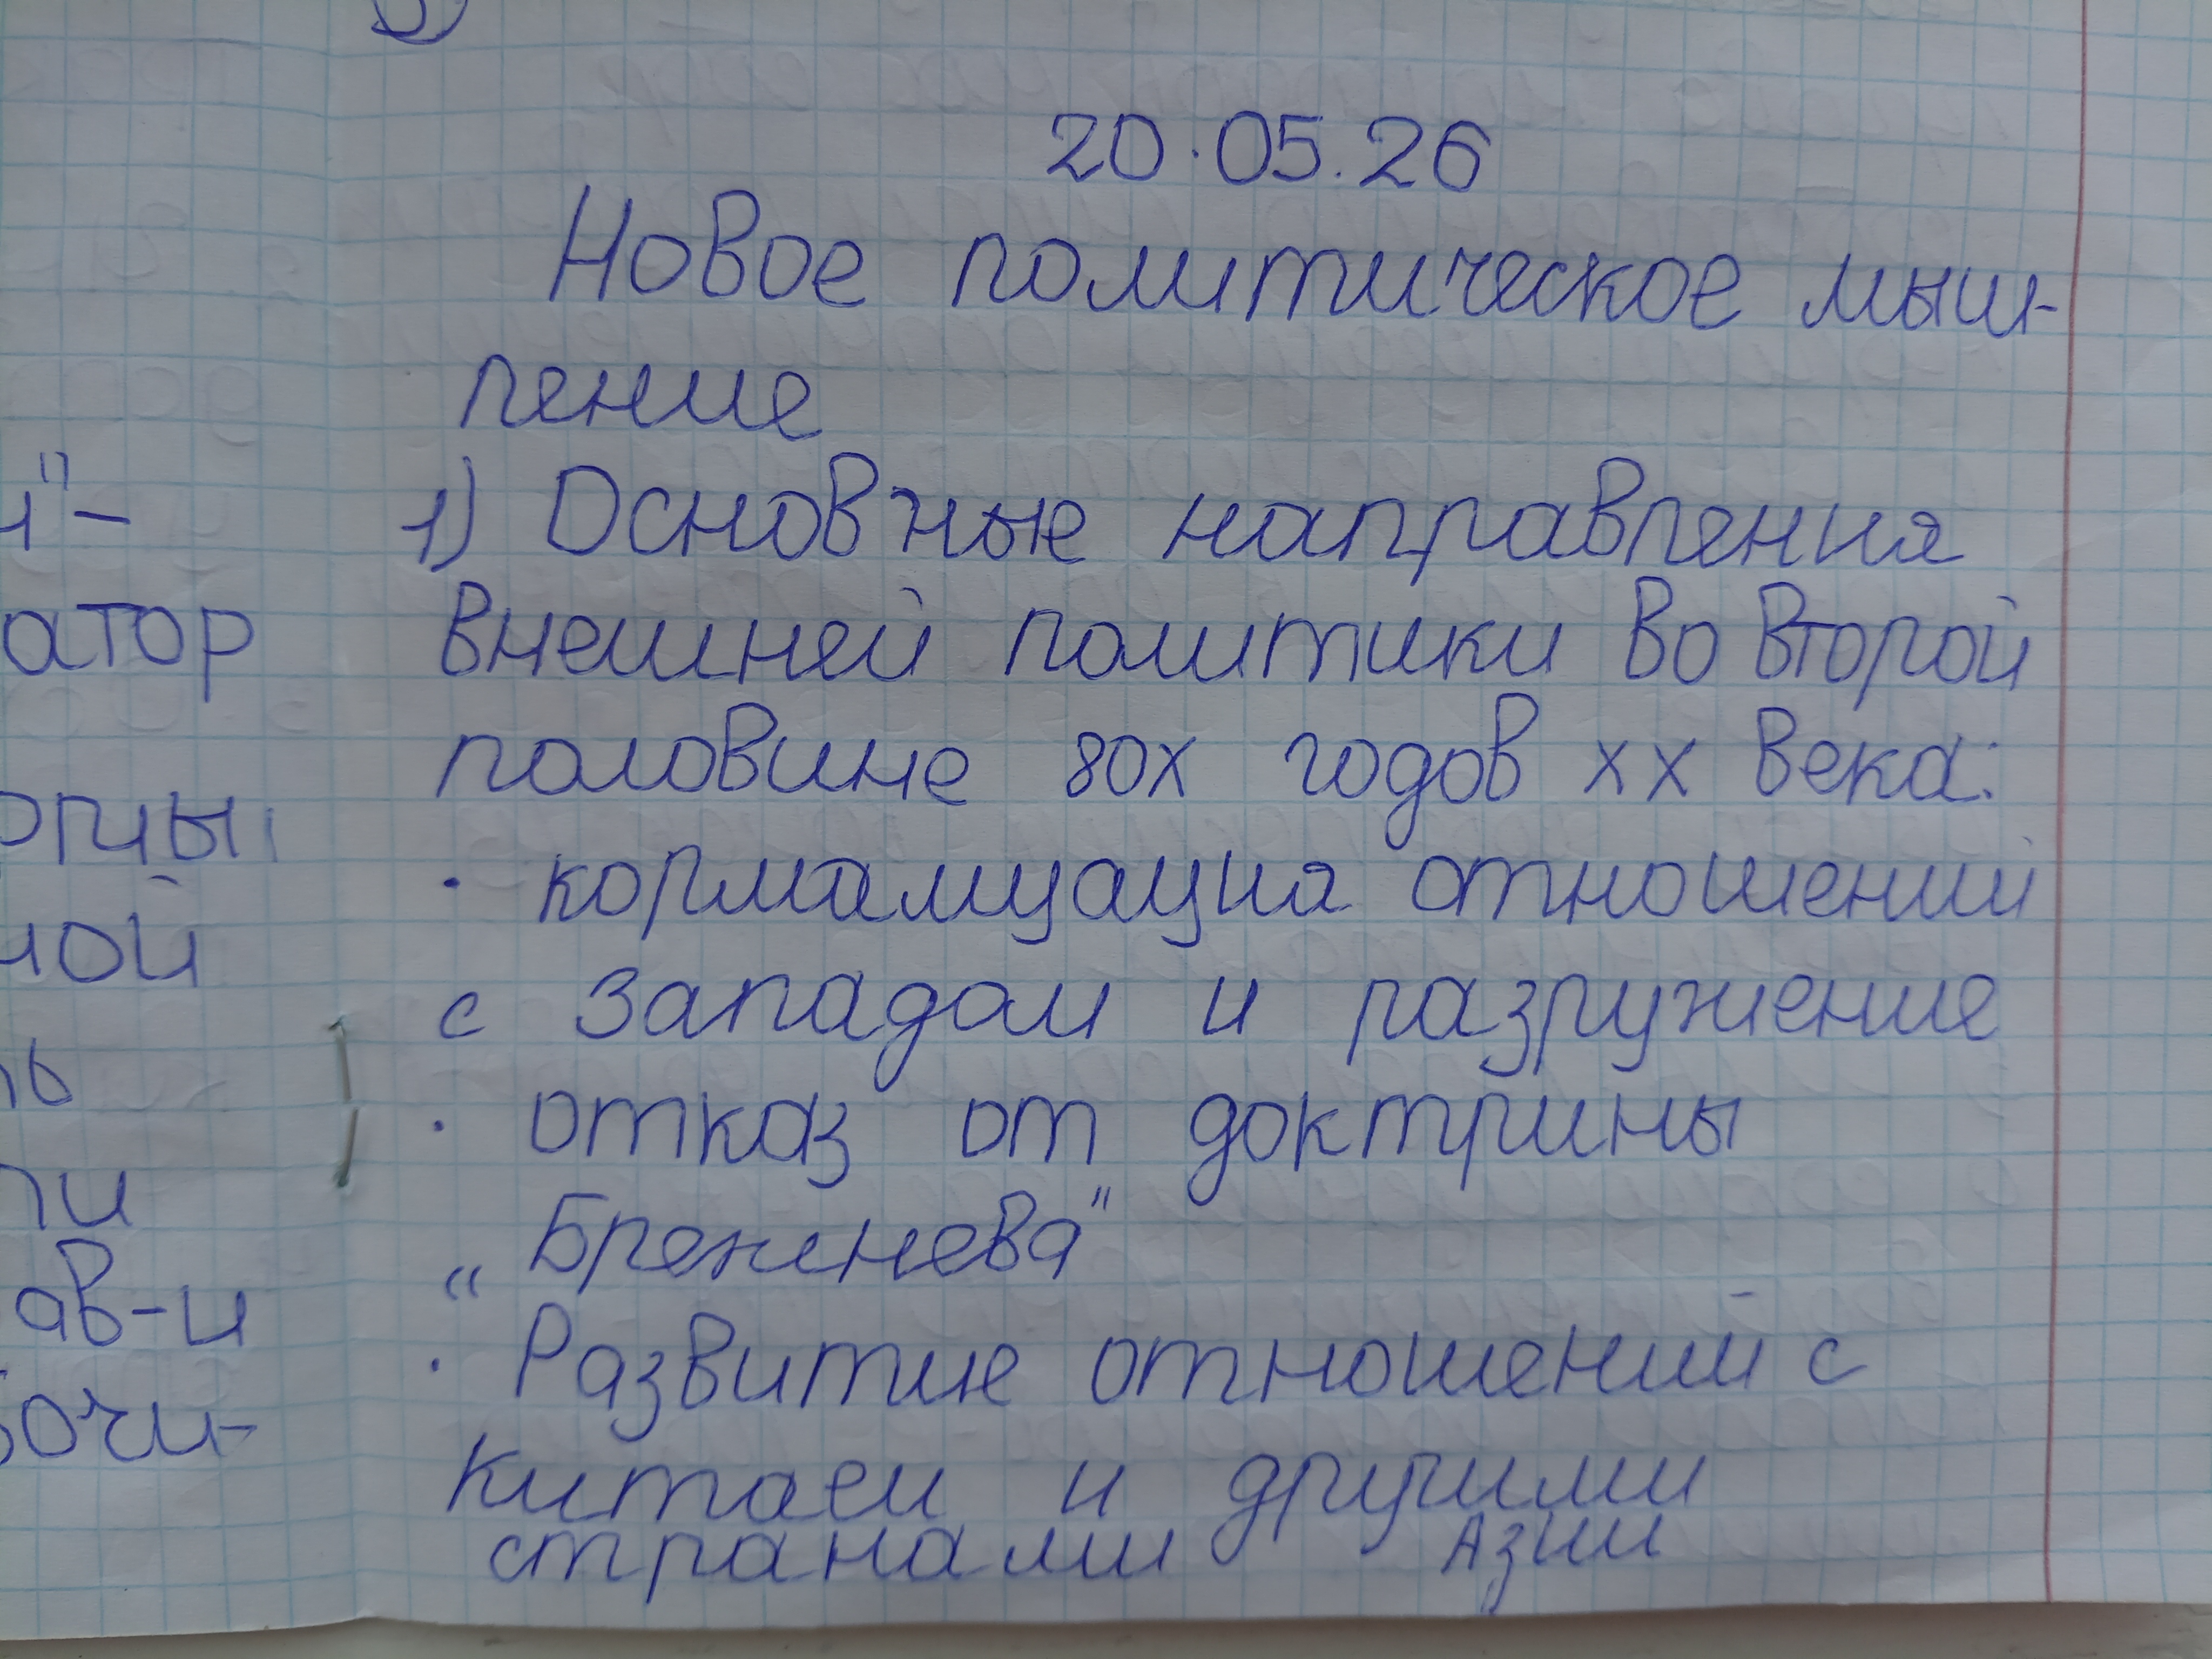 20.05.26
Новое политическое мыш-
ление
1) Основные направления
внешней политики во второй
половине 80х годов хх века:
· кормамизация отношений
с западом и разружение
· отказ от доктрины
"Брежнева"
· Развитие отношений с
Китаем и другими
странами Азии
и" –
атор
ной
ав-и